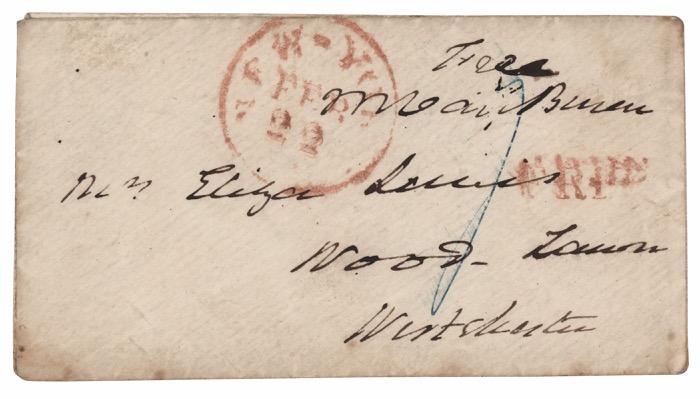 NEW-YO
FEB
22
Free
M Van Buren
Mrs Eliza
Wood-Lawn
Westchester